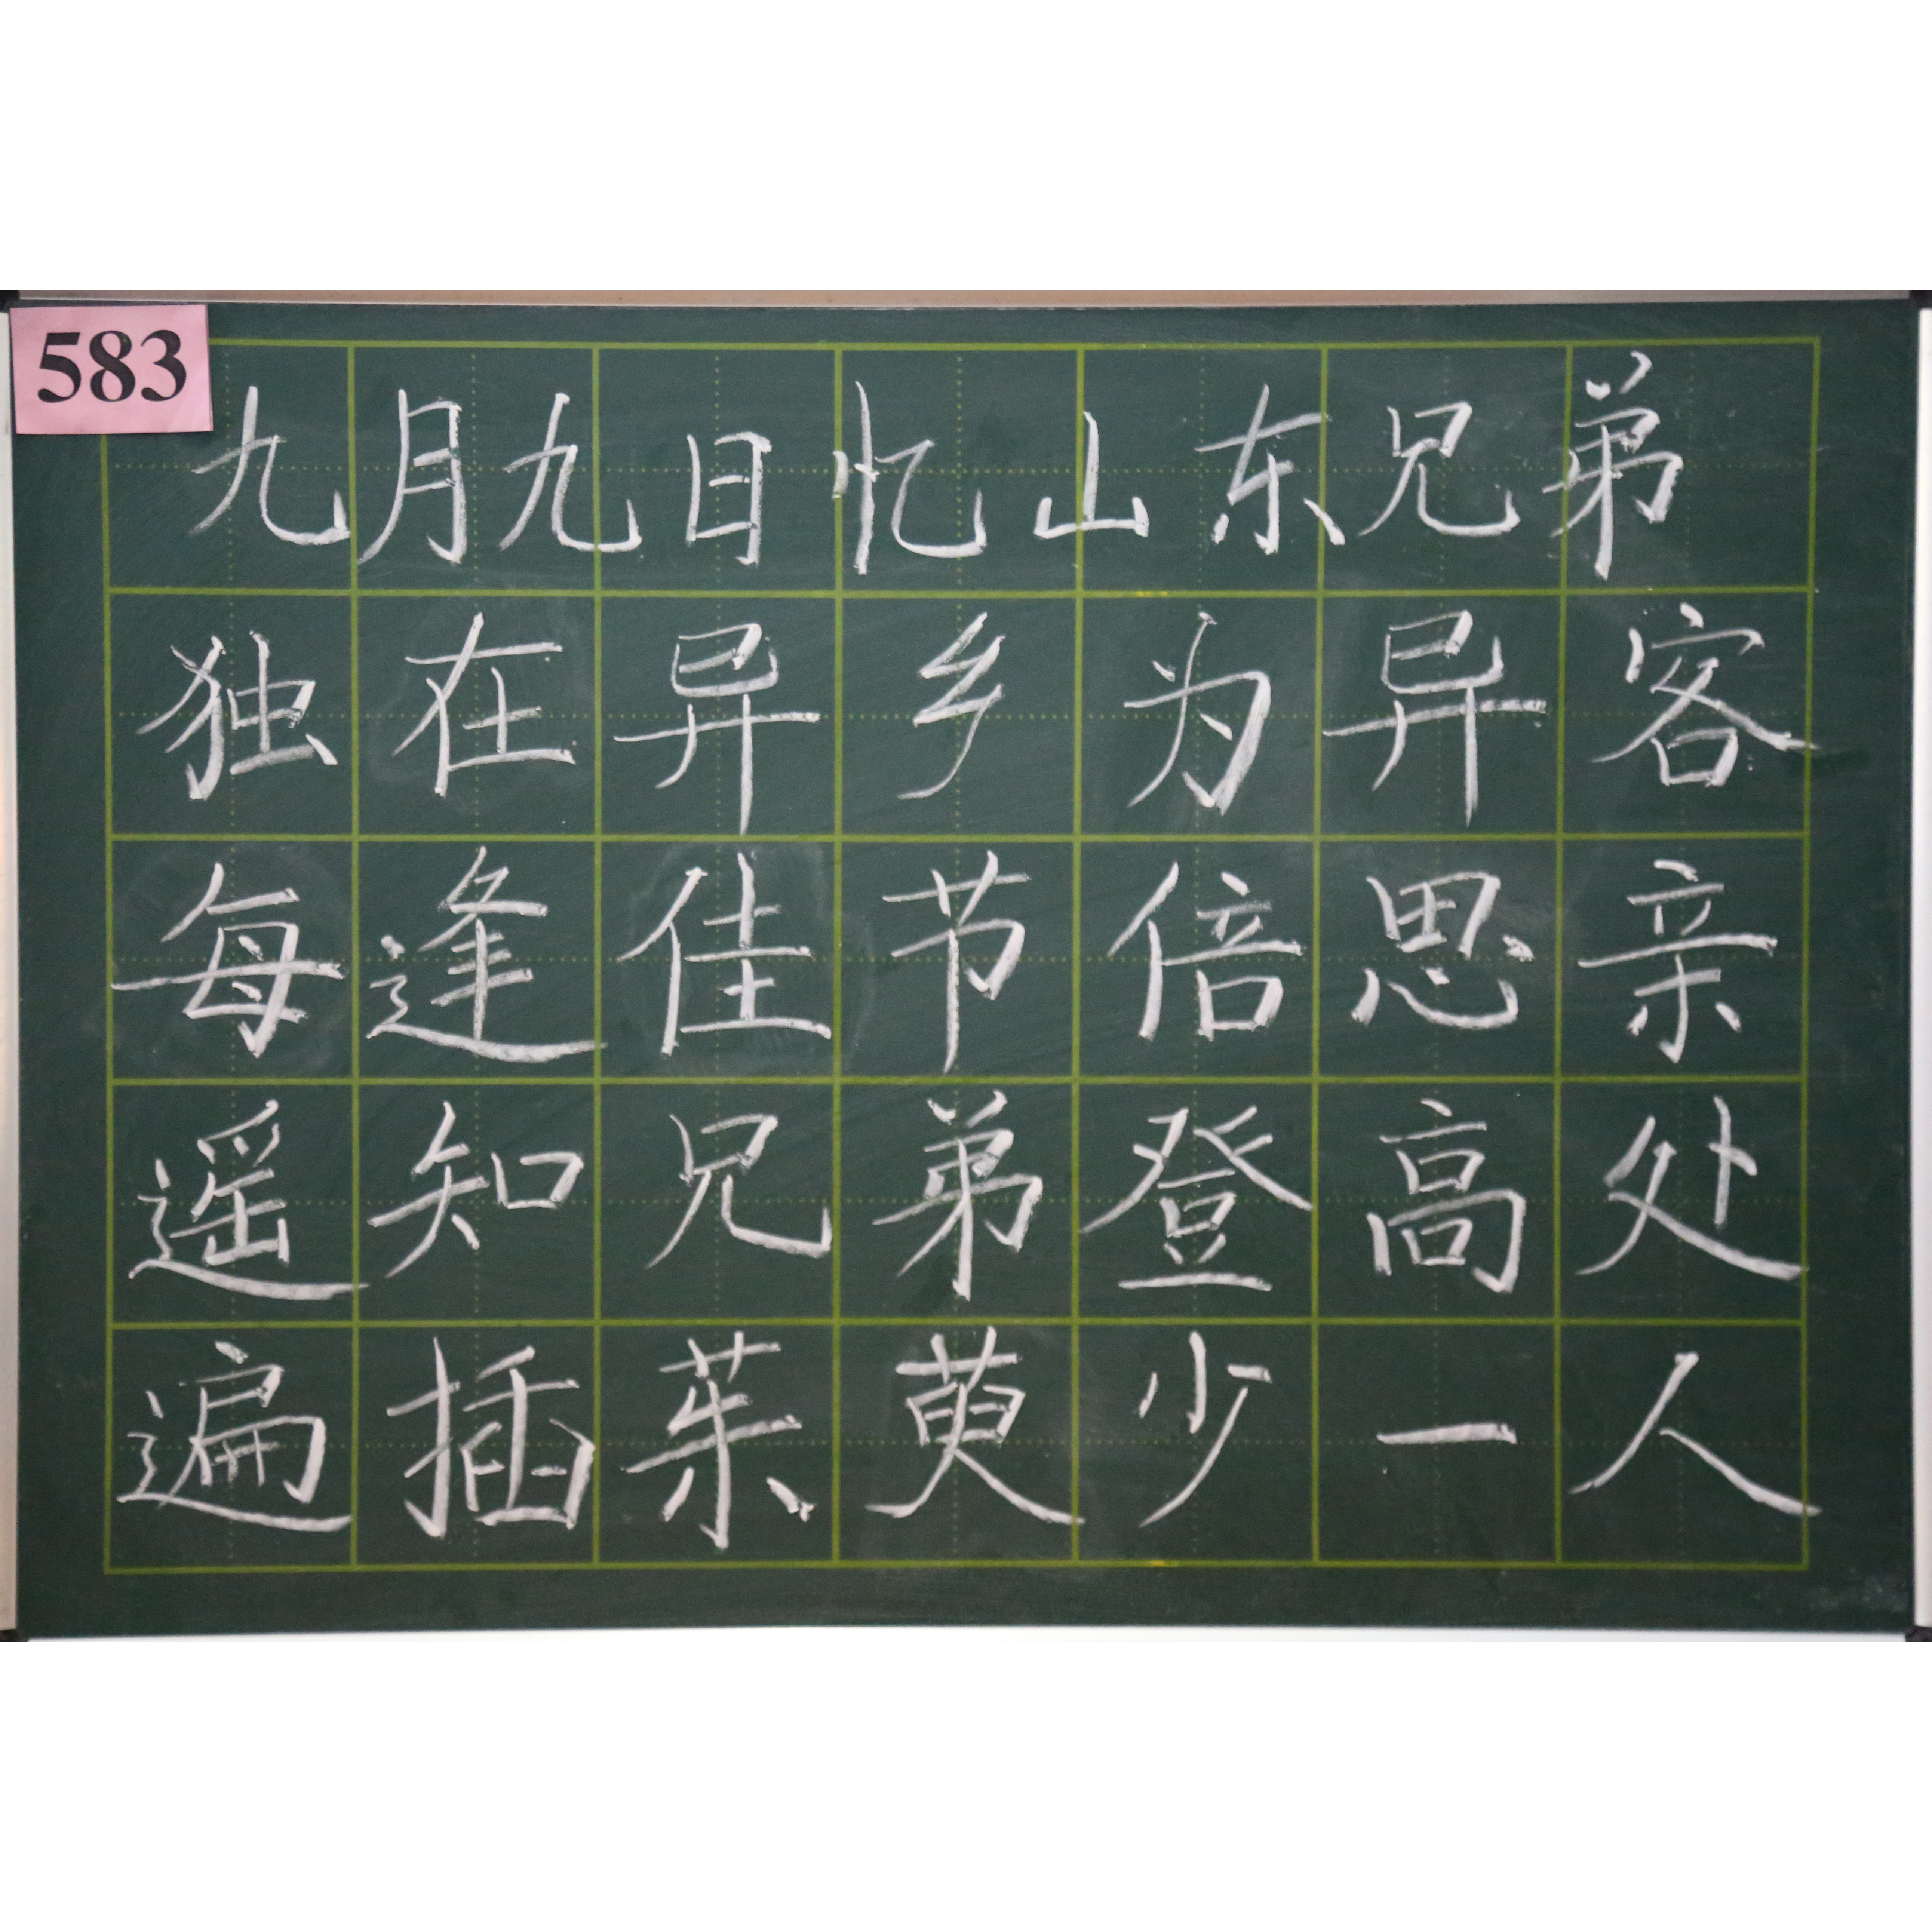 583
九月九日忆山东兄弟
独在异乡为异客
每逢佳节倍思亲
遥知兄弟登高处
遍插茱萸少一人